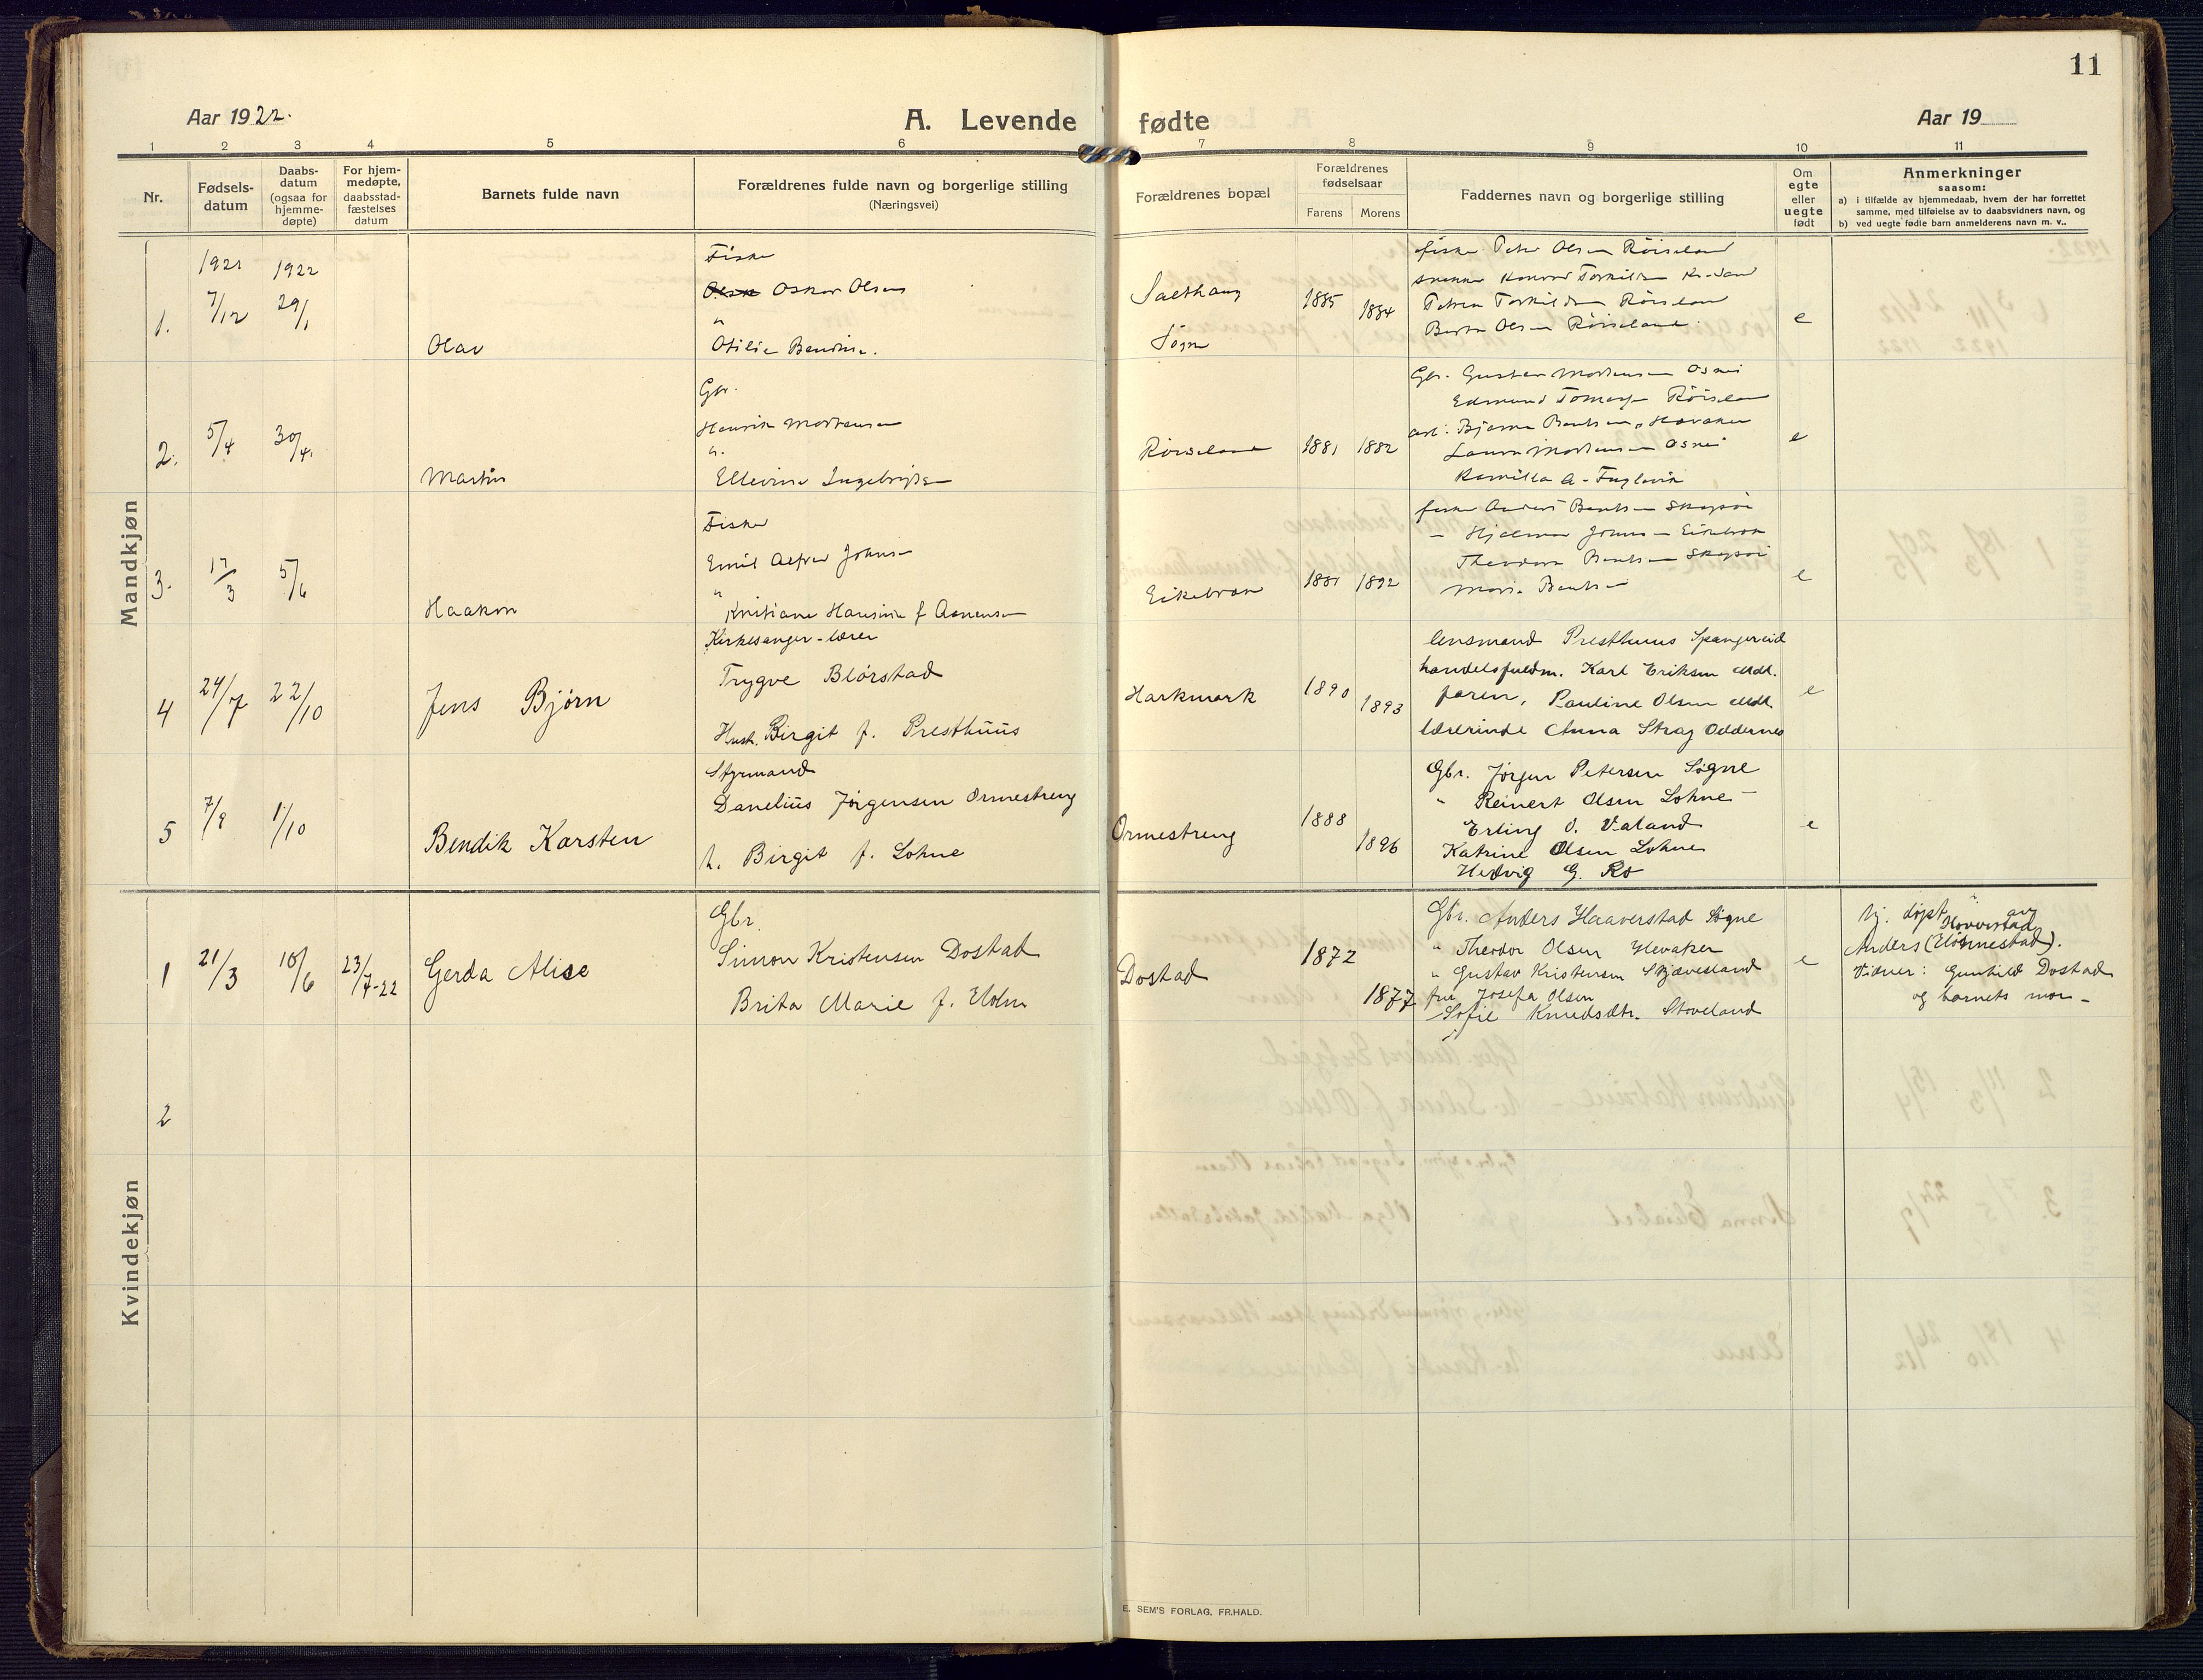 11
Aar 1922.
A. Levende fødte
Aar 19
1 2 3 4 5 6 7 8 9 10 11
Nr.
Fødsels-
datum
Daabs-
datum
(ogsaa for
hjemme-
døpte)
For hjem-
medøpte,
daabsstad-
fæstelses
datum
Barnets fulde navn
Forældrenes fulde navn og borgerlige stilling
(Næringsvei)
Forældrenes bopæl
Forældrenes
fødselsaar
Farens Morens
Faddernes navn og borgerlige stilling
Om
egte
eller
uegte
født
Anmerkninger
saasom:
a) i tilfælde av hjemmedaab, hvem der har forrettet
samme, med tilføielse av to daabsvidners navn, og
b) ved uegte fødte barn anmelderens navn m. v..
Mandkjøn
1.
1921
7/12
1922
29/1
Olav
Fisker
Oskar Olsen
"
Otilie
Søgne
1885 1884
Petra Torkildsen Røiseland
Berta Olsen Røiseland
e
2.
5/4
30/4.
Martin
Gbr.
Henrik Mortensen
h.
Røiseland
1881 1882
Gbr. Gustav Mortensen Osnes
Edmund Tomasen Røiseland
Laura Mortensen Osnes
Kamilla A. Fuglevik
e
3.
17/3
5/6
Haakon
Fisker
Emil Alfred Johnsen
"
Kristiane f Asmensen
1881 1892
fisker Anders Bentsen
Theodora Bentsen
Marie Bentsen
e
4
24/7
22/10
Jens Bjørn
Kirkesanger-lærer
Trygve Blørstad
Hust. Birgit f. Presthuus
Harkmark
1890
1893
lensmand Presthuus Spangereid
handelsfuldm. Karl Eriksen Mdl.
faren, Pauline Olsen Mdl.
lærerinde Anna Stray Oddernes
e
5
7/8
1/10
Bendik Karsten
Styrmand
Danelius Jörgensen Ormestreng
h. Birgit f. Lohne
Ormestreng
1888
1896
Gbr. Jörgen Petersen Sögne
" Reinert Olsen Lohne
Erling O. Valand
Katrine Olsen Lohne
Hedvig G. Ro
e
Kvindekjøn
1
21/3
18/6
23/4-22
Gerda Alise
Gbr.
Simon Kristensen Dostad
Brita Marie f. Holm
Dostad
1872
1877
Gbr. Anders Haaverstad Søgne
" Theodor Olsen Hevaker
" Gustav Kristensen Skjævesland
fru Josefa Olsen
Sofie Knudsdtr. Stoveland
e
hj. døpt av
Hovverstad
Anders (Hönnestad).
Vidner: Gunhild Dostad
og barnets mor -
2
E. SEM'S FORLAG. FR.HALD.